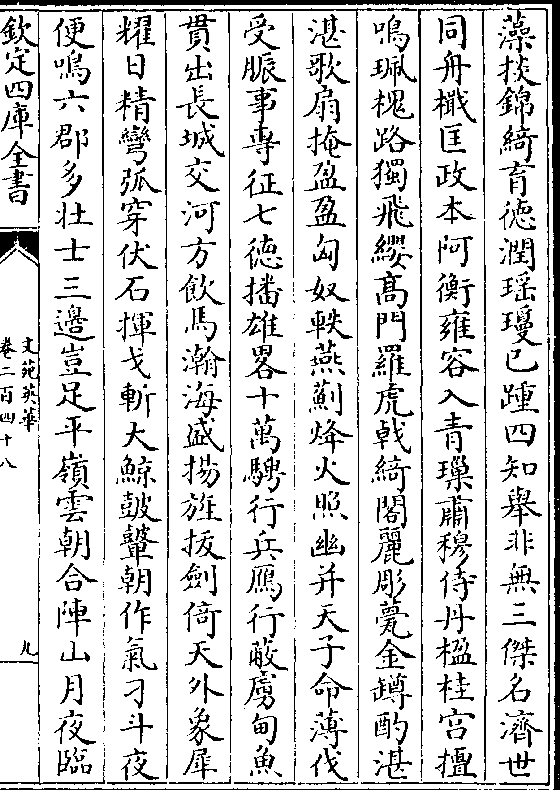 藻掞錦綺育德潤瑶瓊已踵四知舉非無三傑名濟世
同舟檝匡政本阿衡雍容入青璅肅穆侍丹楹桂宮擅
鳴珮槐路獨飛纓髙門羅虎戟綺閣麗彫甍金罇酌湛
湛歌扇掩盈盈匈奴軼燕薊烽火照幽并天子命薄伐
受脤事專征七德播雄畧十萬騁行兵鴈行蔽虜甸魚
貫出長城交河方飲馬瀚海盛揚旌拔劍倚天外象犀
耀日精彎弧穿伏石揮戈斬大鯨鼓鼙朝作氣刁斗夜
便鳴六郡多壮士三邉豈足平嶺雲朝合陣山月夜臨
欽定四庫全書
文苑英華
卷二百四十八
九